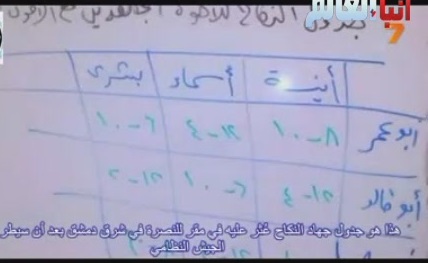 أنباء العالم
7
جدول النكاح للأخوة المجاهدين مع الأخوات
أنيسة أسماء بشرى
أبو عمر ٨-١٠ ١٢-٤ ٦-١٠
أبو خالد ١٢-٤ ٦-١٠ ١٢-٢
هذا هو جدول جهاد النكاح عُثر عليه في مقر للنصرة في شرق دمشق بعد أن سيطر
الجيش النظامي